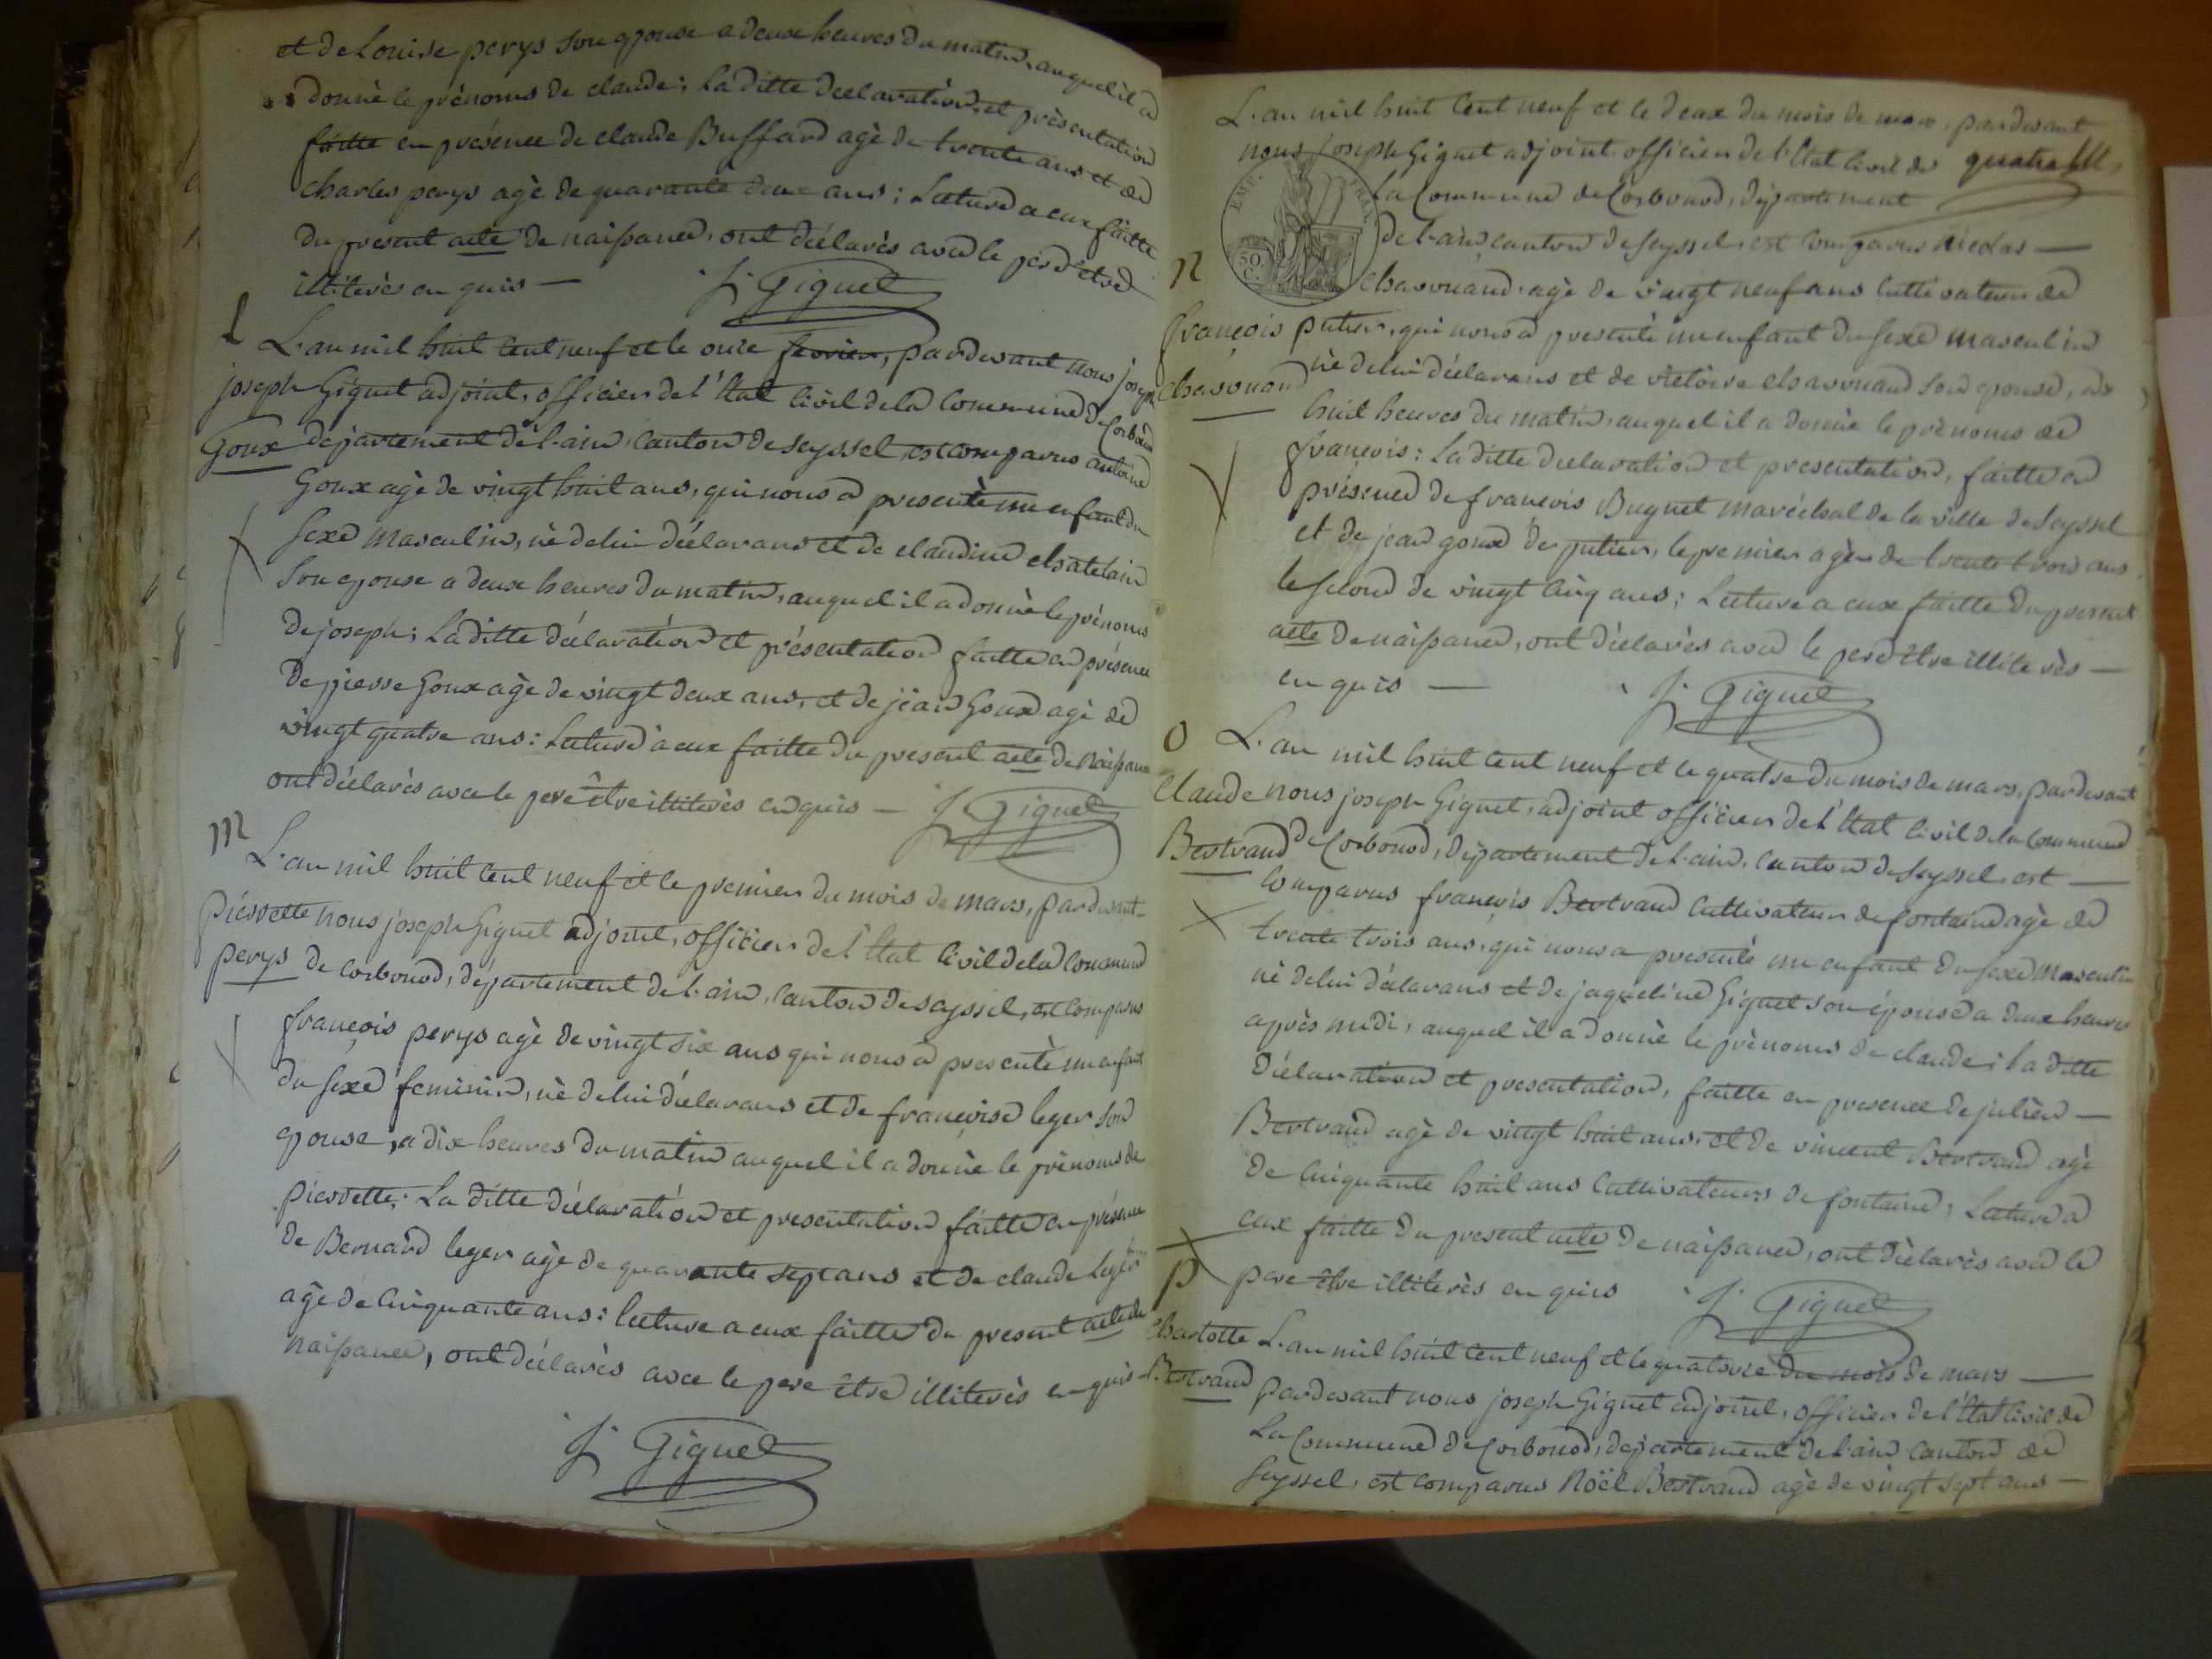 et de Louise perys son epouse a deux heures du matin, auquel il a
donné le prénoms de claude: la ditte déclaration, et présentation
faitte en présence de claude Buffard agé de trente ans et de
charles perys agé de quarante deux ans; Lecture a eux faitte
du present acte de naissance, ont déclarés avec le pere être
illiterés enquis — J. Giguet
L
L'an mil huit cent neuf et le onze fevrier, pardevant nous joseph
joseph Giguet adjoint, officier de l'Etat civil de la Commune de Corbonod
Goux departement de l'ain, canton de seyssel est comparus antoine
Goux agé de vingt huit ans, qui nous a presenté un enfant du
sexe masculin, né de lui déclarans et de claudine chatelain
son epouse a deux heures du matin, auquel il a donné le prénoms
de joseph; La ditte déclaration et présentation faitte en présence
de pierre Goux agé de vingt deux ans, et de jean Goux agé de
vingt quatre ans: Lecture a eux faitte du present acte de Naissance
ont déclarés avec le pere être illiterés enquis — J. Giguet
M
L'an mil huit cent neuf et le premier du mois de mars, pardevant
pierrette nous joseph Giguet adjoint, officier de l'Etat civil de la Commune
perys de corbonod, département de l'ain, canton de seyssel, est comparus
françois perys agé de vingt six ans qui nous a presenté un enfant
du sexe feminin, né de lui déclarans et de françoise leger son
epouse, a dix heures du matin auquel il a donné le prénoms de
pierrette: La ditte déclaration et presentation faitte en présence
de Bernard leger agé de quarante sept ans et de claude Leger
agé de cinquante ans: lecture a eux faitte du present acte de
naissance, ont déclarés avec le pere être illiterés enquis —
J. Giguet
L'an mil huit cent neuf et le deux du mois de mars, pardevant
nous joseph Giguet adjoint officier de l'Etat civil de quatre
la Commune de Corbonod, département
EMP. FRAN.
50 C.
de l'ain, canton de seyssel, est comparus Nicolas —
N
Charonand, agé de vingt neuf ans cultivateur de
françois putier, qui nous a presenté un enfant du sexe masculin
Charonand né de lui déclarans et de victoire charonand son epouse, a
huit heures du matin, auquel il a donné le prénoms de
françois: La ditte declaration et presentation, faitte en
présence de françois Buguet maréchal de la ville de Seyssel
et de jean goux de putier, le premier agés de trente trois ans
le second de vingt cinq ans; Lecture a eux faitte du present
acte de naissance, ont déclarés avec le pere être illiterés —
enquis — J. Giguet
O
L'an mil huit cent neuf et le quatre du mois de mars, pardevant
Claude nous joseph Giguet, adjoint officier de l'Etat civil de la Commune
Bertrand de Corbonod, département de l'ain, canton de seyssel, est —
comparus françois Bertrand cultivateur de fontaine agé de
trente trois ans, qui nous a presenté un enfant du sexe Masculin
né de lui déclarans et de jaqueline Giguet son épouse a deux heures
après midi, auquel il a donné le prénoms de claude; la ditte
déclaration et presentation, faitte en presence de julien —
Bertrand agé de vingt huit ans, et de vincent Bertrand agé
de cinquante huit ans cultivateurs de fontaine; Lecture a
eux faitte du present acte de naissance, ont déclarés avec le
P
pere être illiterés enquis J. Giguet
Charlotte L'an mil huit cent neuf et le quatorze du mois de mars —
Bertrand pardevant nous joseph Giguet adjoint, officier de l'Etat civil de
La Commune de Corbonod, departement de l'ain canton de
Seyssel, est comparus Noël Bertrand agé de vingt sept ans —